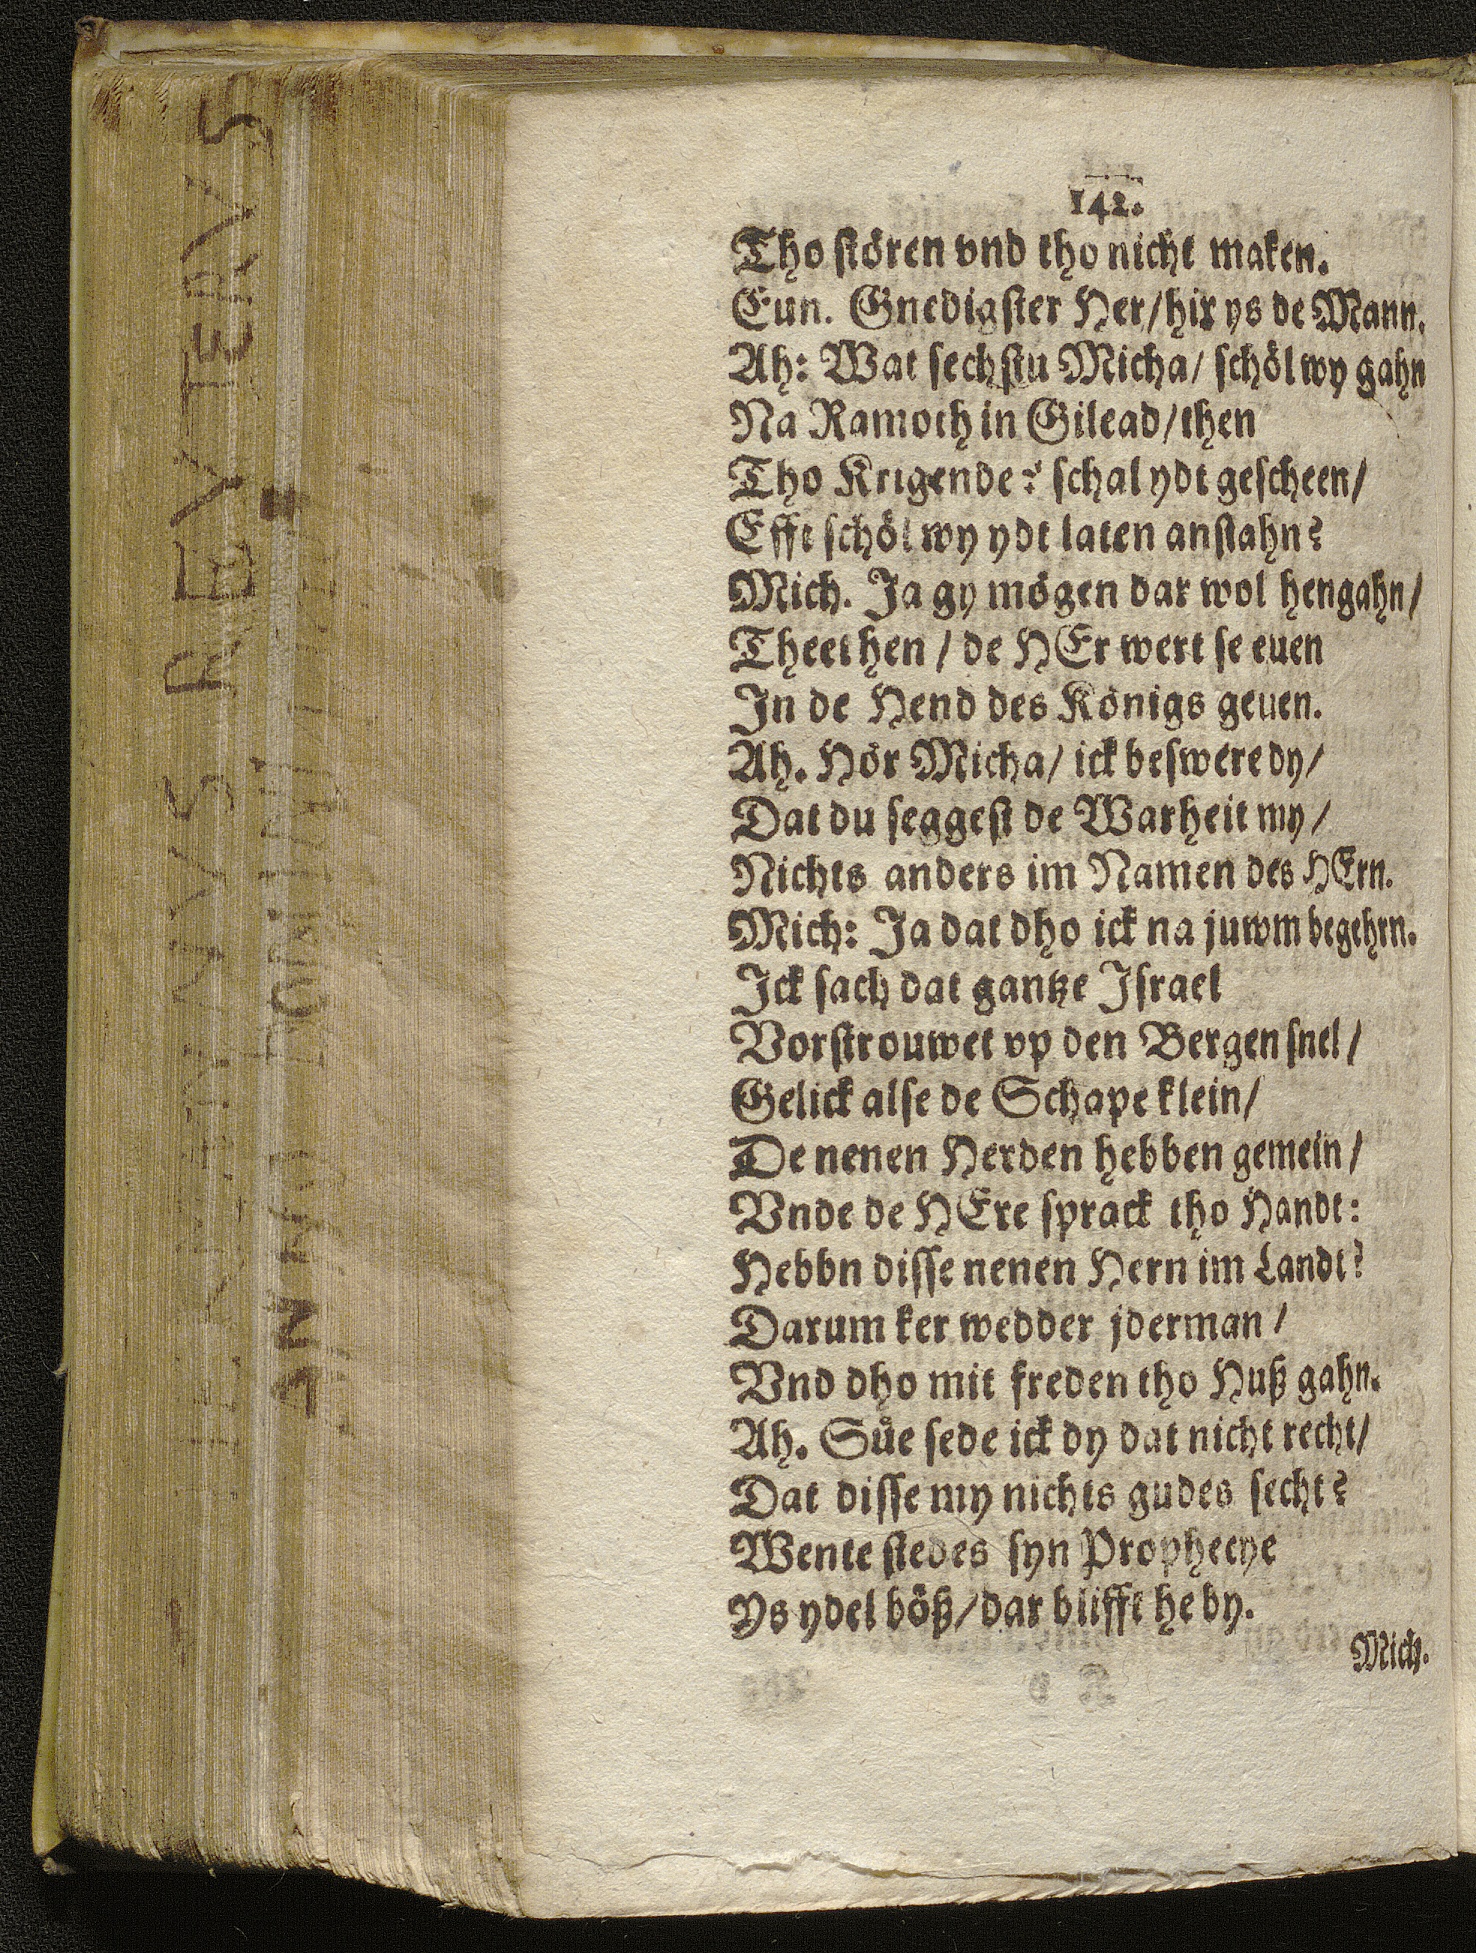 142.
Tho stören vnd tho nicht maken.
Eun. Gnedigster Her/hir ys de Mann.
Ah: Wat sechstu Micha/ schöl wy gahn
Na Ramoth in Gilead/then
Tho Krigende? schal ydt gescheen/
Efft schöl wy ydt laten anstahn?
Mich. Ja gy mögen dar wol hengahn/
Theet hen / de HEr wert se euen
In de Hend des Königs geuen.
Ah. Hör Micha/ ick beswere dy/
Dat du seggest de Warheit my/
Nichts anders im Namen des HErn.
Mich: Ja dat dho ick na juwm begehrn.
Ick sach dat gantze Israel
Vorstrouwet vp den Bergen snel/
Gelick alse de Schape klein/
De nenen Herden hebben gemein/
Vnde de HEre sprack tho Handt:
Hebbn disse nenen Hern im Landt?
Darum ker wedder jderman/
Vnd dho mit freden tho Huß gahn.
Ah. Süe sede ick dy dat nicht recht/
Dat disse my nichts gudes secht?
Wente stedes syn Prophecye
Ys ydel böß/dar blifft he by.
Mich.